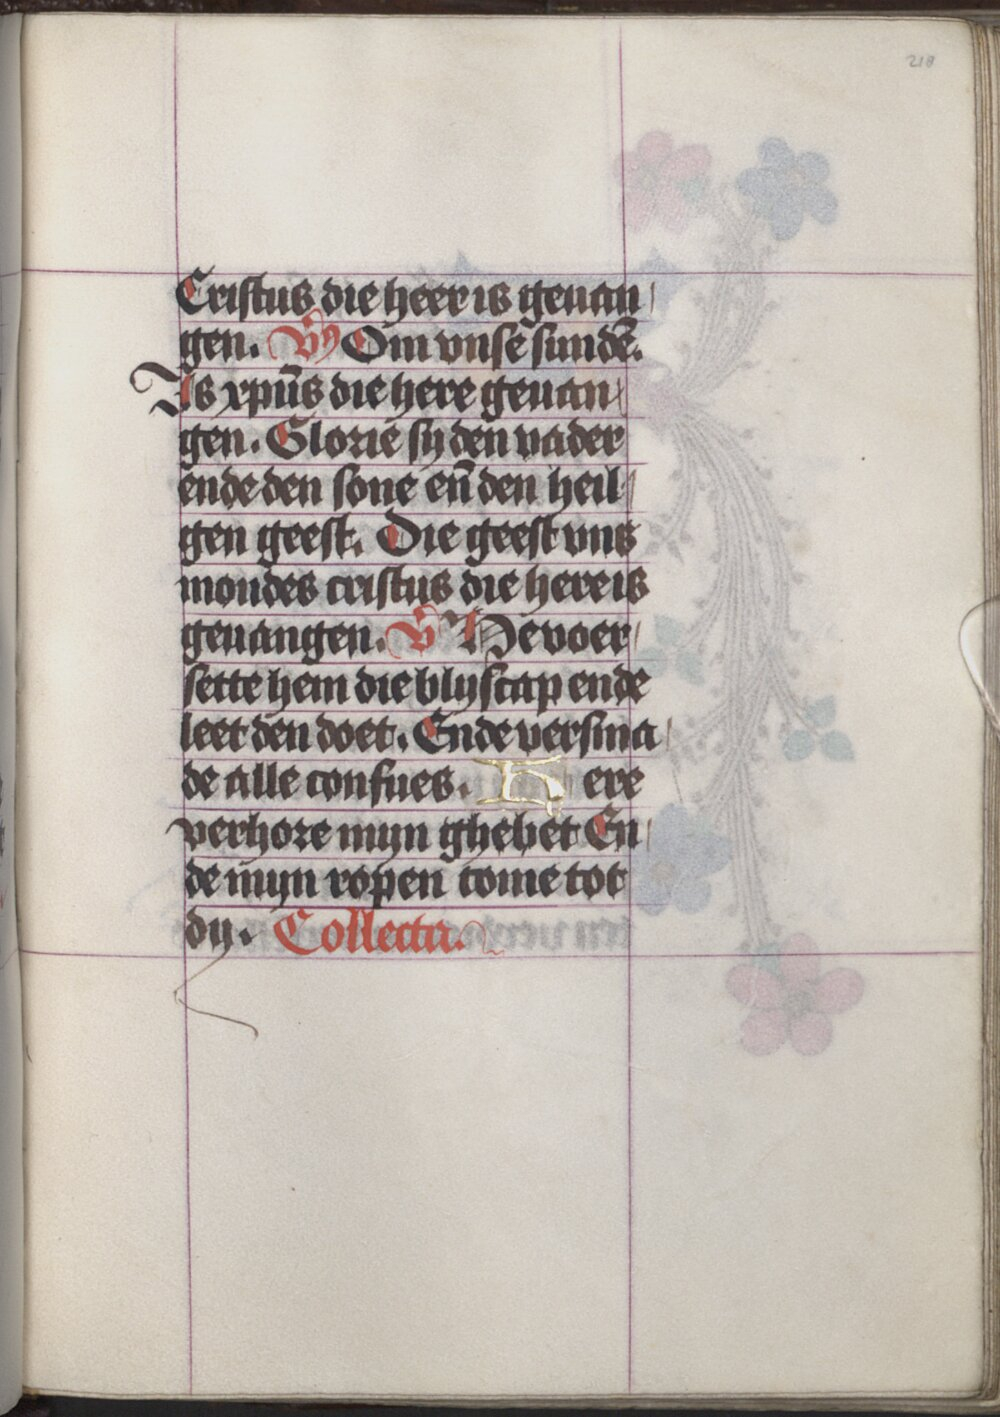 218
Cristus die heer is geuan
gen. Vs Om vnse sunde.
Is xpūs die here geuan
gen. Glorie sy den vader
ende den sone eñ den heil
gen geest. Die geest vns
mondes cristus die here is
geuangen. V He voer
sette hem die blyscap ende
leet den doet. Ende versma
de alle confues. Here
verhore myn ghebet En
de myn ropen come tot
dy. Collecta.